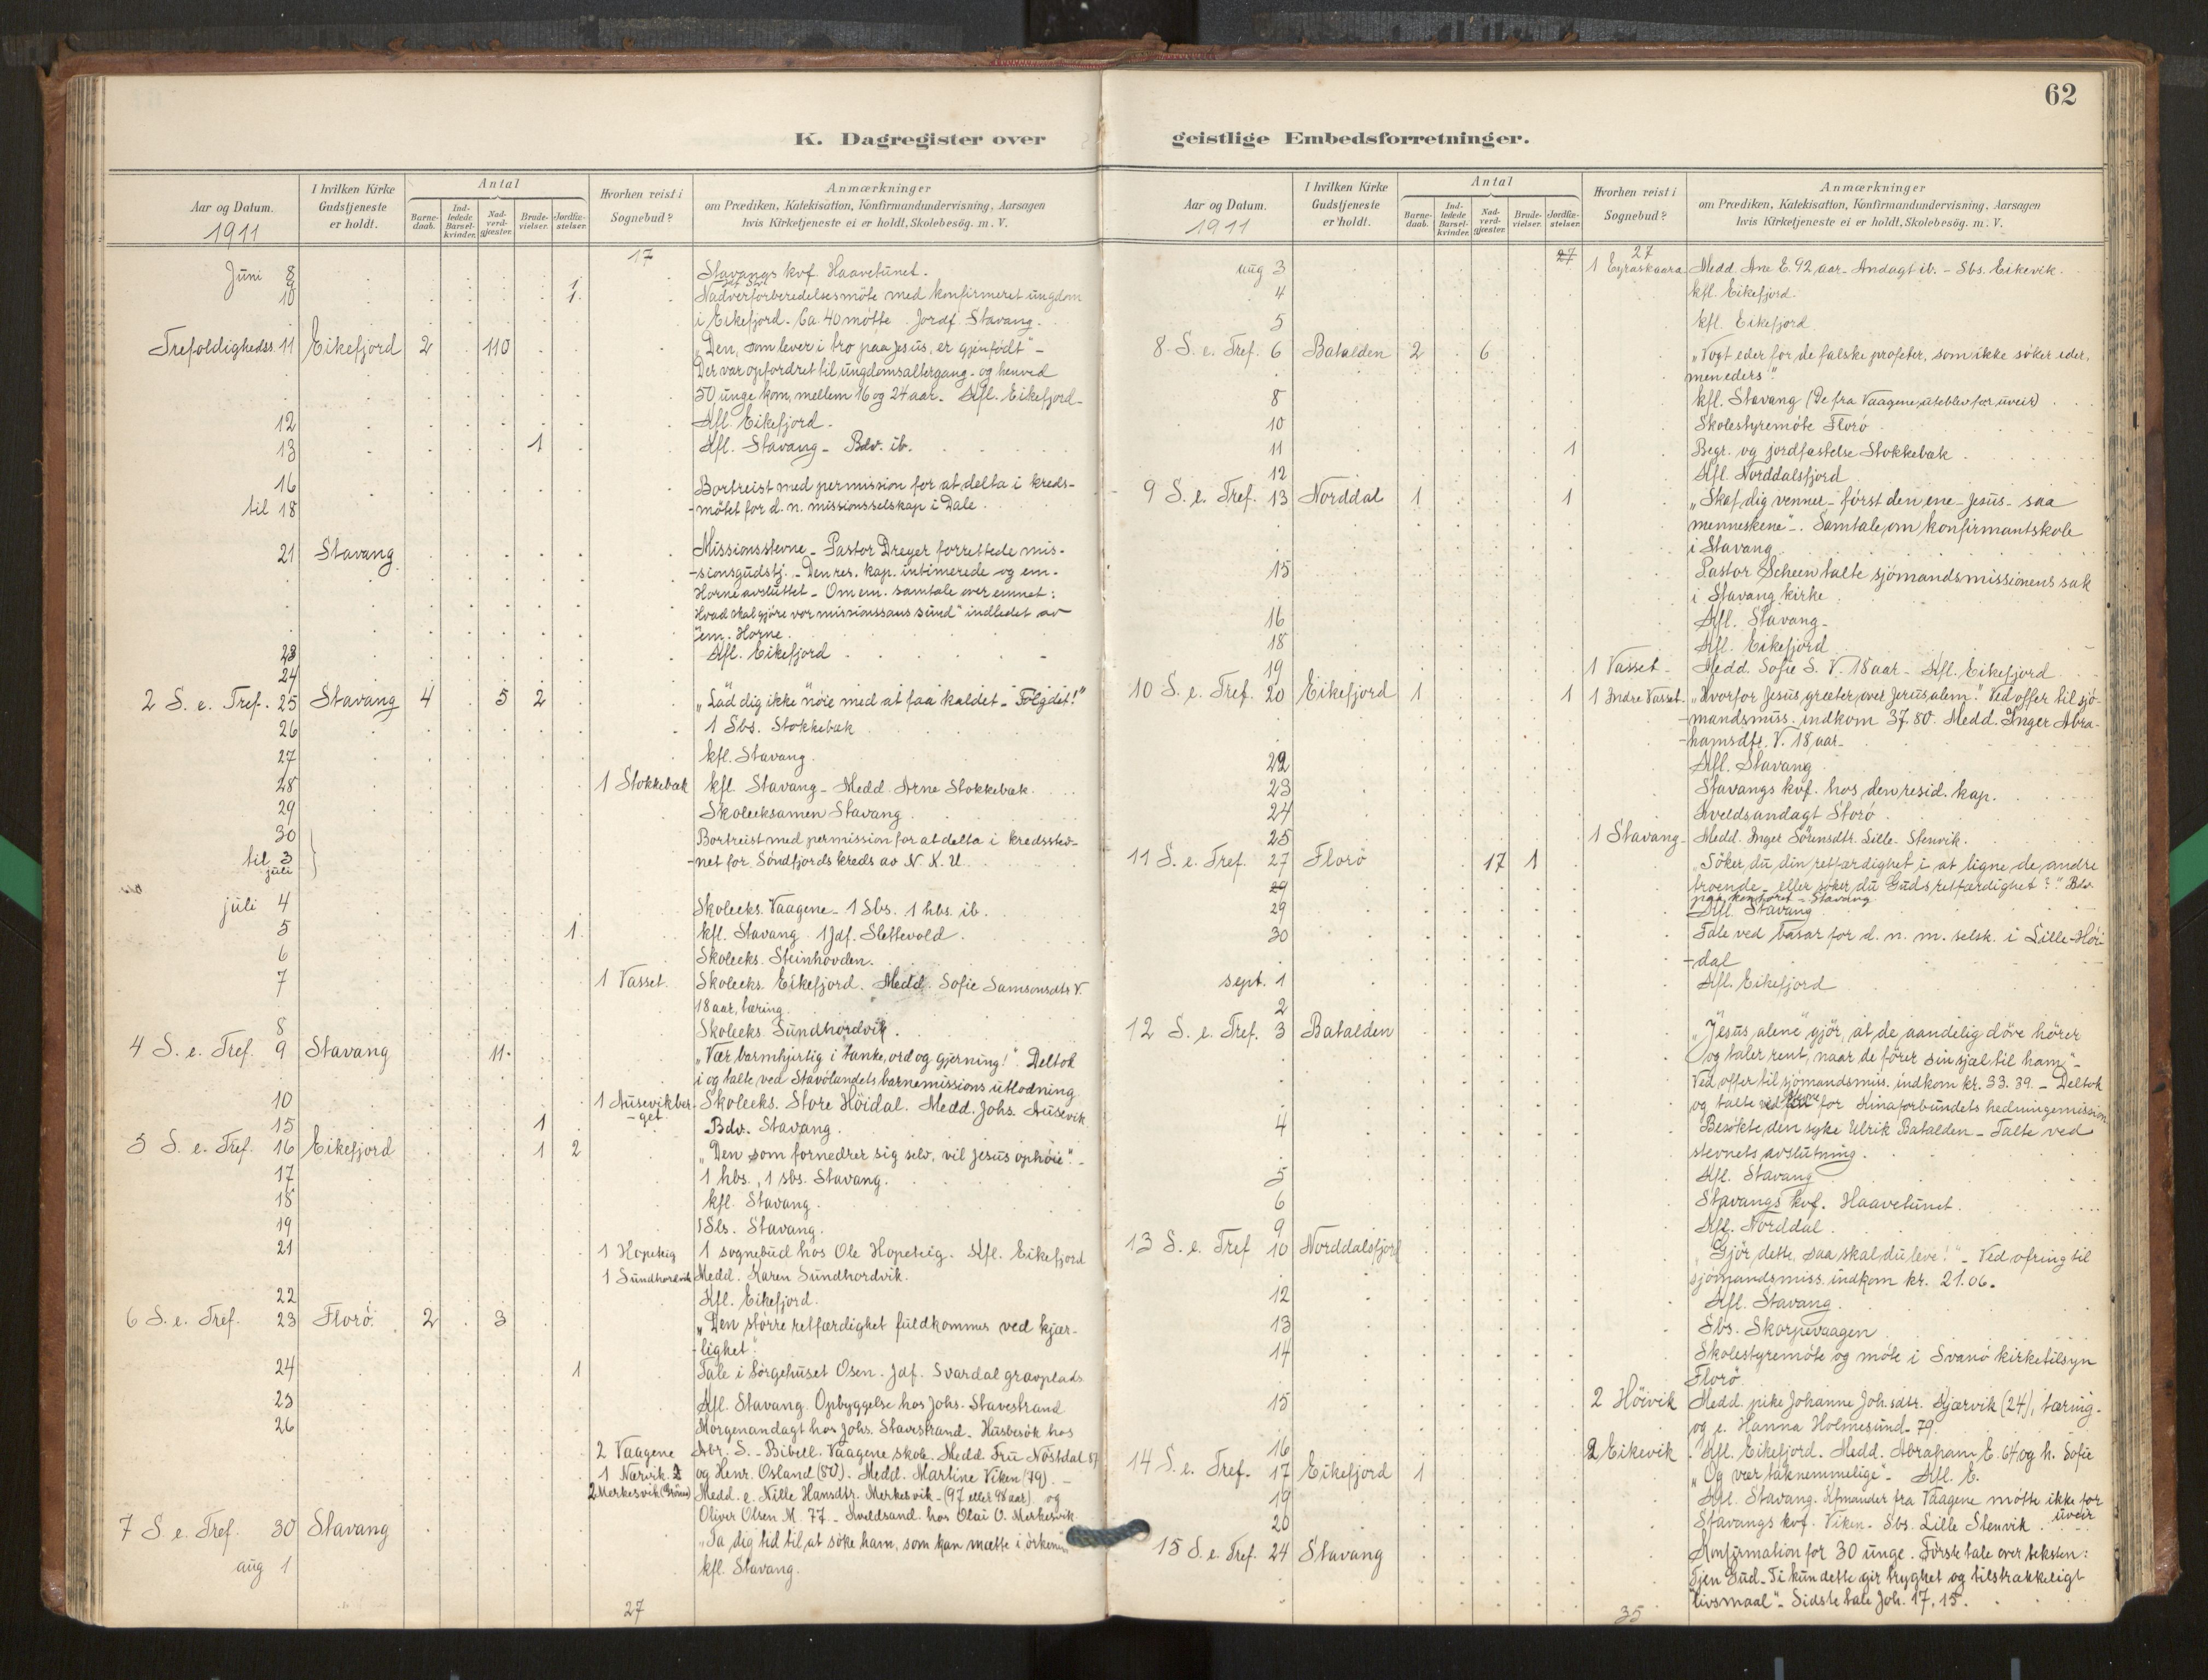 62
K. Dagregister over geistlige Embedsforretninger.
Aar og Datum.
1911
I hvilken Kirke Gudstjeneste er holdt.
Antal
Barne-daab.
Ind-ledede Barsel-kvinder.
Nad-verd-gjæster.
Brude-vielser.
Jordfæ-stelser.
Hvorhen reist i Sognebud?
Anmærkninger
om Prædiken, Katekisation, Konfirmandundervisning, Aarsagen
hvis Kirketjeneste ei er holdt, Skolebesög. m. V.
17
Juni 8 Stavangs kvf. Haavetunet.
9 1
10 1 Nadverforberedelsesmöte med konfirmeret ungdom
i Eikefjord. Ca 40 mötte. Jordf. Stavang.
Trefoldighedss. 11 Eikefjord 2 110 „Den, som lever i tro paa Jesus, er gjenfödt" -
Der var opfordret til ungdomsaltergang - og henved
50 unge kom, mellem 16 og 24 aar. Kfl. Eikefjord -
12 Kfl. Eikefjord -
13 1 Kfl. Stavang - Bdv. ib.
16 Bortreist med permission for at delta i kreds-
til 18 -mötet for d. n. missionsselskap i Dale.
21 Stavang Missionsstevne - Pastor Dreyer forrettede mis-
-sionsgudstj. - Den res. kap. intimerede og em.
Horne avsluttet - Om em. samtale over emnet:
Hvad skal gjöre vor missionssans sund" indledet av
em. Horne.
23 Kfl. Eikefjord
24
2 S. e. Tref. 25 Stavang 4 5 2 „Lad dig ikke nöie med at faa kaldet - Fölg det!"
26 1 Sbs. Stokkebak
27 kfl. Stavang.
28 1 Stokkebak kfl. Stavang - Medd. Arne Stokkebak.
29 Skoleeksamen Stavang.
30 Bortreist med permission for at delta i kredsstev-
til 3 juli -net for Söndfjords kreds av N. K. U.
juli 4 Skoleeks. Vaagene - 1 Sbs. 1 hbs. ib.
5 1 kfl. Stavang 1 Jdf. Slettevold.
6 Skoleeks. Steinhovden.
7 1 Vasset. Skoleeks. Eikefjord. Medd. Sofie Samsonsdtr V.
18 aar, tæring.
8 Skoleeks. Sundhordvik.
4 S. e. Tref. 9 Stavang 11 „Vær barmhjertig i tanke, ord og gjerning!" Deltok
i og talte ved Stavölandets barnemissions utlodning
10 1 Ausevikber-get Skoleeks. Store Höidal. Medd. Johs. Ausevik
15 1 Bdv. Stavang.
5 S. e. Tref. 16 Eikefjord 1 2 „Den som fornedrer sig selv, vil Jesus ophöie".
17 1 hbs., 1 sbs. Stavang.
18 kfl. Stavang.
19 1 Sbs. Stavang.
21 1 Hopeteig 1 sognebud hos Ole Hopeteig. Kfl. Eikefjord
1 Sundhordvik Medd. Karen Sundhordvik.
22 Kfl. Eikefjord.
6 S. e. Tref. 23 Florö. 2 3 „Den större retfærdighet fuldkommes ved kjær-
-lighet".
24 1 Tale i Sörgehuset Osen. Jdf. Svardal gravplads
25 Kfl. Stavang. Opbyggelse hos Johs. Stavestrand
26 Morgenandagt hos Johs. Stavestrand. Husbesök hos
2 Vaagene Abr. S. - Bibell. Vaagene skole. Medd. Fru Nöstdal 87
1 Nærvik og Henr. Osland (80). Medd. Martine Viken (79). -
2 Merkesvik Medd. e. Nille Hansdtr. Merkesvik - (97 eller 98 aar) og
Oliver Olsen M. 77 - Kveldsand. hos Olai O. Merkesvik
7 S e. Tref. 30 Stavang „Ta dig tid til at söke ham, som kan mætte i örkenen"
aug 1 kfl. Stavang.
27
Aar og Datum.
1911
I hvilken Kirke Gudstjeneste er holdt.
Antal
Barne-daab.
Ind-ledede Barsel-kvinder.
Nad-verd-gjæster.
Brude-vielser.
Jordfæ-stelser.
Hvorhen reist i Sognebud?
Anmærkninger
om Prædiken, Katekisation, Konfirmandundervisning, Aarsagen
hvis Kirketjeneste ei er holdt, Skolebesög. m. V.
27 27
aug 3 1 Eyraskaara Medd. Ane E. 92 aar - Andagt ib. - Sbs. Eikevik.
4 kfl. Eikefjord.
5 kfl. Eikefjord
8 S. e. Tref. 6 Batalden 2 6 „Vogt eder for de falske profeter, som ikke söker eder,
men eders".
8 kfl. Stavang (De fra Vaagene uteblev for uveir)
10 Skolestyremöte Florö
11 1 Begr. og jordfæstelse Stokkebak
12 Kfl. Norddalsfjord
9 S. e. Tref. 13 Norddal 1 1 „Skaf dig venner - först den ene - Jesus - saa
menneskene" -. Samtale om konfirmantskole
i Stavang
15 Pastor Scheen talte sjömandsmissionens sak
i Stavang kirke
16 Kfl. Stavang -
18 Kfl. Eikefjord
19 1 Vasset - Medd. Sofie S. V. 18 aar - Kfl. Eikefjord
10 S. e. Tref. 20 Eikefjord 1 1 1 Indre Vasset. „Hvorfor Jesus græter over Jerusalem." Ved offer til sjö-
-mandsmiss. indkom 37.80. Medd. Inger Abra-
-hamsdtr. V. 18 aar -
22 Kfl. Stavang
23 Stavangs kvf. hos den resid. kap.
24 Kveldsandagt Storö
25 1 Stavang - Medd. Inger Sörensdtr. Lille-Stenvik.
11 S. e. Tref 27 Florö 17 1 „Söker du din retfærdighet i at ligne de andre
29 troende - eller söker du Guds retfærdighet?" Bdv.
paa kontoret - Stavang
29 Kfl. Stavang
30 Tale ved basar for d. n. m. selsk. i Lille-Höi-
-dal
sept. 1 Kfl. Eikefjord
2
12 S. e. Tref. 3 Batalden „Jesus alene" gjör, at de aandelig döve hörer
og taler rent, naar de förer sin sjæl til ham" -
Ved offer til sjömandsmiss. indkom kr. 33.39. - Deltok
og talte ved stevne for Kinaforbundets hedningemission
4 Besökte den syke Ulrik Batalden - Talte ved
stevnets avslutning.
5 Kfl. Stavang
6 Stavangs kvf. Haavetunet.
9 Kfl. Norddal.
13 S. e. Tref 10 Norddalsfjord „Gjör dette, saa skal du leve!" - Ved ofring til
sjömandsmiss. indkom kr. 21.06.
12 Kfl. Stavang.
13 Sbs. Skorpevaagen
14 Skolestyremöte og möte i Svanö kirketilsyn
Florö.
15 2 Höivik Medd. pike Johanne Joh.sdtr. Kjærvik (24), tæring -
og e. Hanna Holmesund - 79.
16 2 Eikevik Kfl. Eikefjord. Medd. Abraham E. 64 og h. Sofie
14 S. e. Tref. 17 Eikefjord 1 „Og vær taknemmelige" - Kfl. E.
19 Kfl. Stavang. Kfmander fra Vaagene mötte ikke for uveir
20 Stavangs kvf. Viken - Sbs. Lille Stenvik.
15 S. e. Tref. 24 Stavang Konfirmation for 30 unge. Förste tale over teksten:
Tjen Gud - Ti kun dette gir tryghet og tilstrækkeligt
livsmaal" - Sidste tale Joh. 17, 15.
35